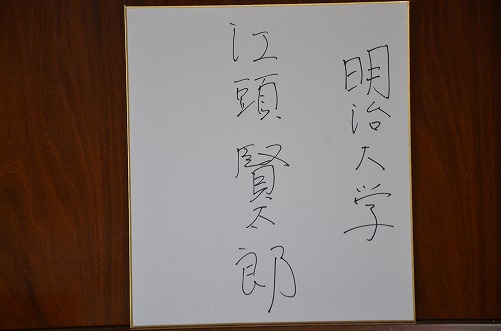 明治大学
江頭賢太郎